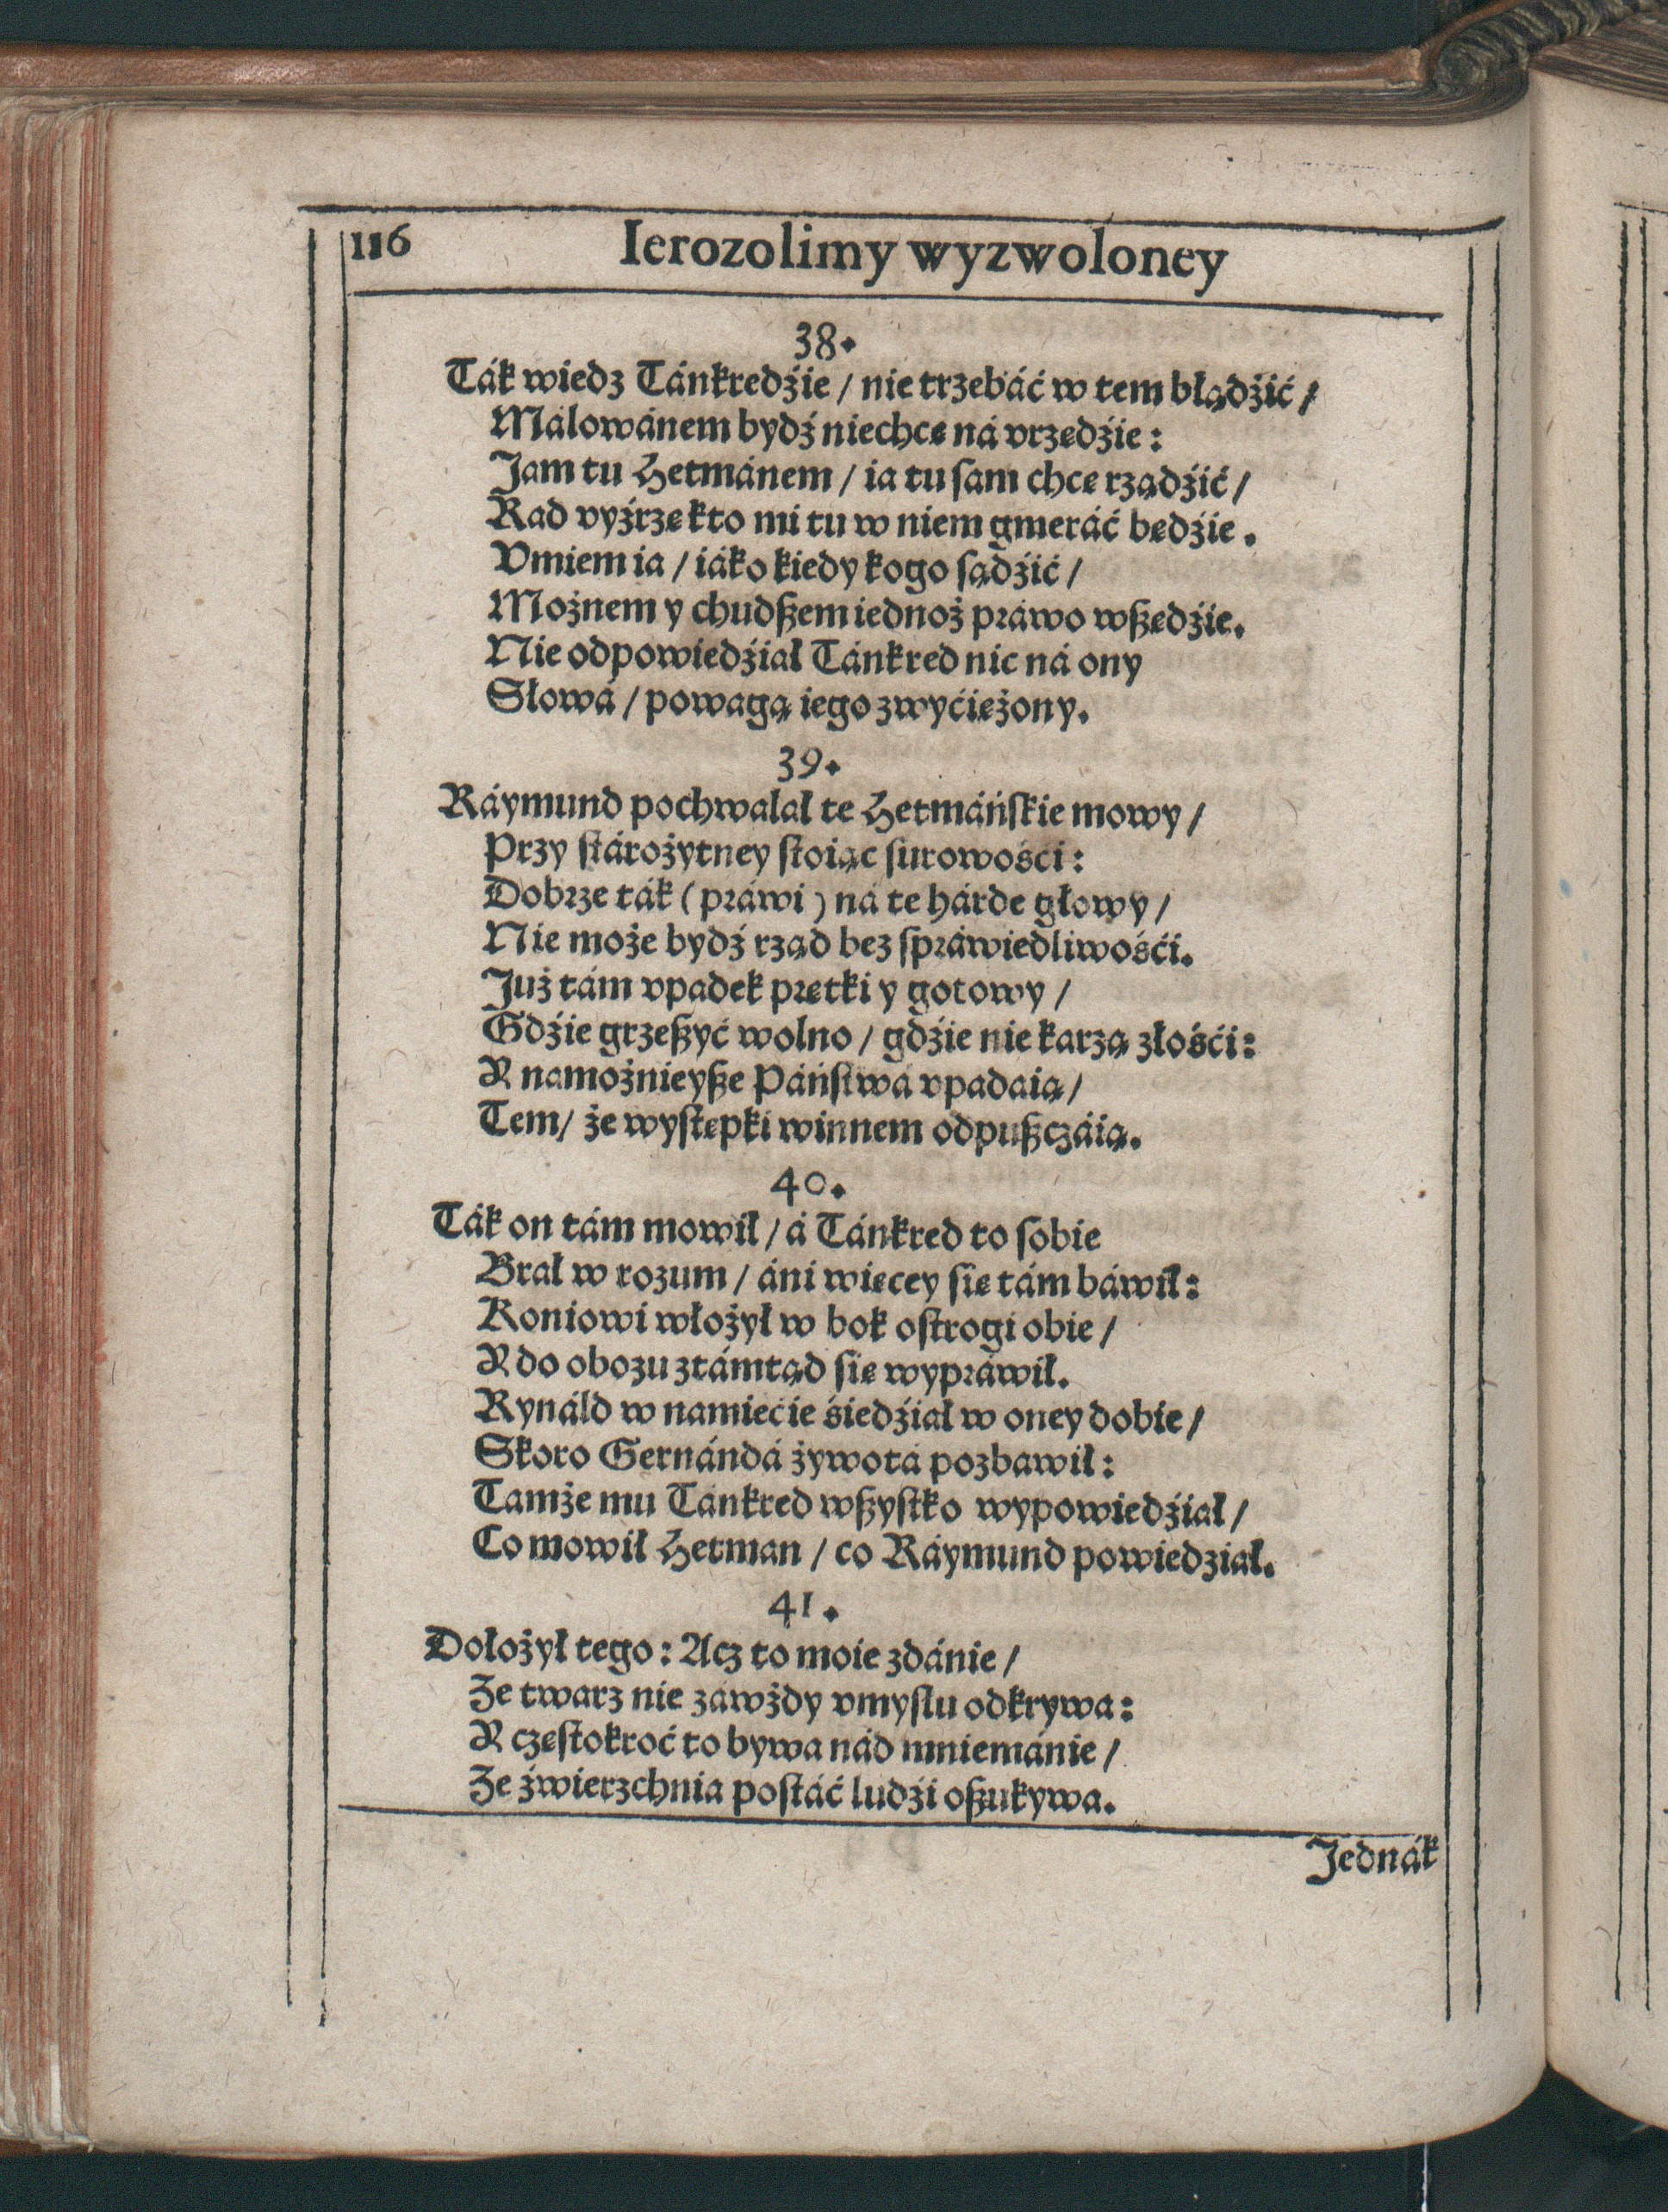 116 Ierozolimy wyzwoloney
38.
Ták wiedz Tánkredźie / nie trzebáć w tem błądźić /
Málowánem bydź niechcę ná vrzędźie :
Jam tu Hetmánem / ia tu ſam chcę rządźić /
Rad vyźrzę kto mi tu w niem gmeráć będźie .
Vmiem ia / iáko kiedy kogo ſądźić /
Możnem y chudßem iednoż práwo wßędźie.
Nie odpowiedźiał Tánkred nic ná ony
Słowá / powagą iego zwyćiężony.
39.
Ráymund pochwalał te Hetmáńſkie mowy /
Przy ſtárożytney ſtoiąc ſurowośći :
Dobrze ták ( práwi ) ná te hárde głowy /
Nie może bydź rząd bez ſpráwiedliwośći.
Już tám vpadek prętki y gotowy /
Gdźie grzeßyć wolno / gdźie nie karzą złośći :
Y namożnieyße Páńſtwá vpadaią /
Tem / że wyſtępki winnem odpußczáią.
40.
Ták on tám mowił / á Tánkred to ſobie
Brał w rozum / áni więcey ſię tám báwił :
Koniowi włożył w bok oſtrogi obie /
Y do obozu ztámtąd ſię wypráwił.
Rynáld w namiećie śiedźiał w oney dobie /
Skoro Gernándá żywotá pozbawił :
Tamże mu Tánkred wßyſtko wypowiedźiał /
Co mowił Hetman / co Ráymund powiedział.
41.
Dołożył tego : Acz to moie zdánie /
Że twarz nie záwżdy vmyſłu odkrywa :
Y częſtokroć to bywa nád mniemánie /
Że źwierzchnia poſtáć ludźi oßukywa.
Jednák